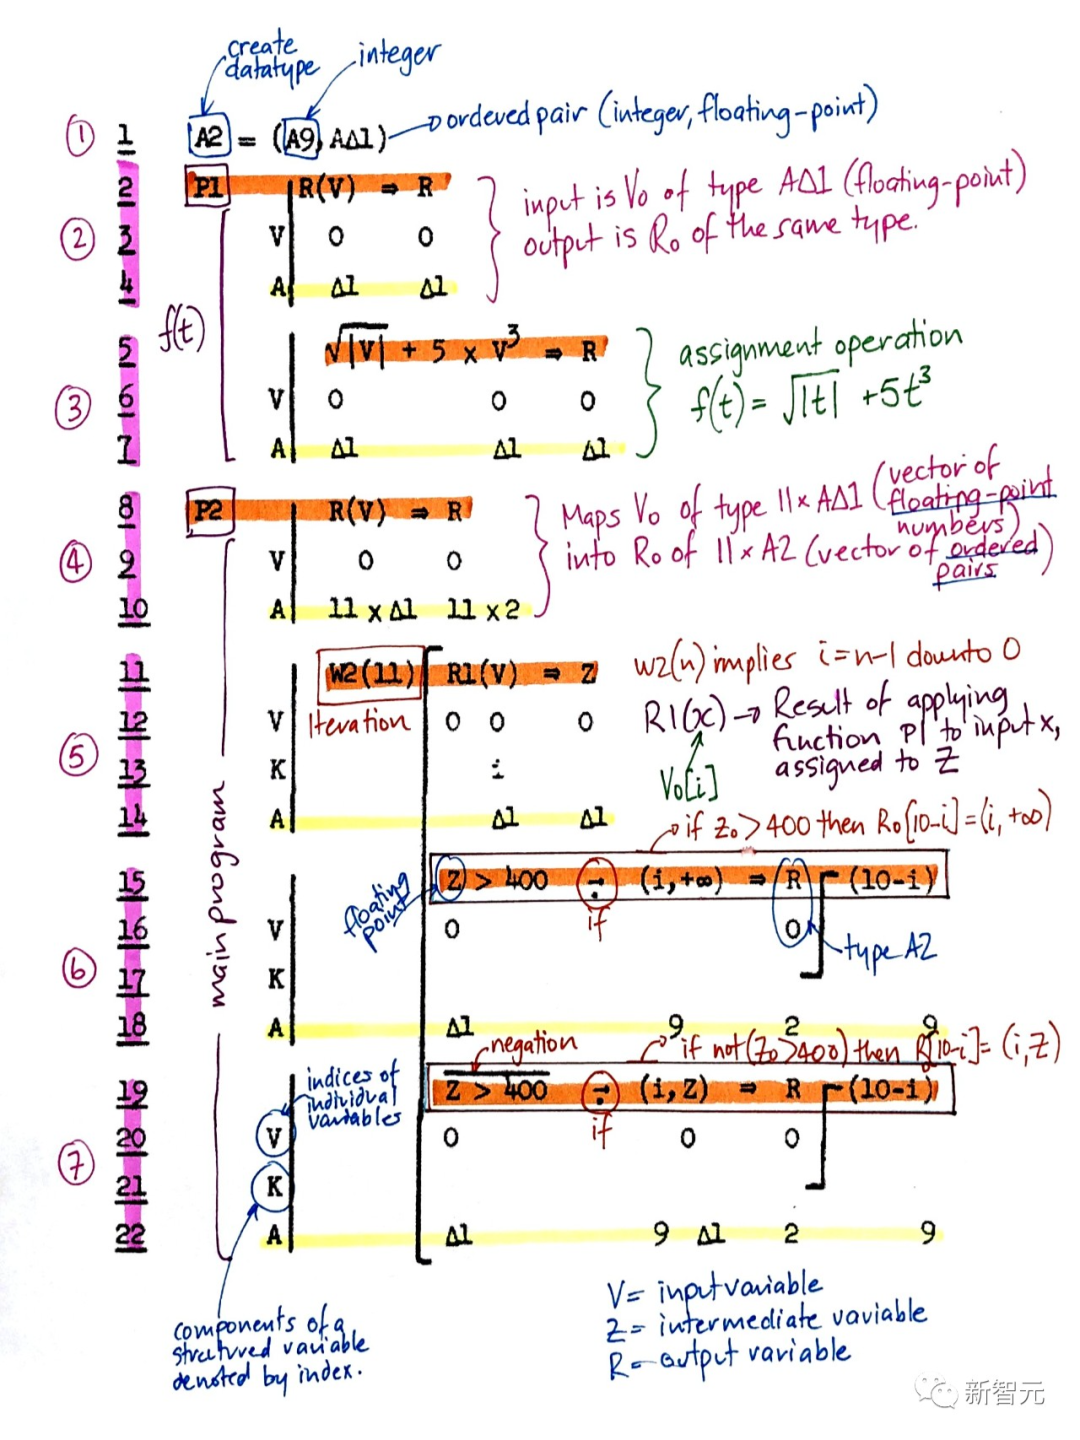 create
datatype
integer
① 1 A2 = (A9, AΔ1) ordered pair (integer, floating-point)
2 P1 R(V) ⇒ R
② 3 V 0 0
4 A Δ1 Δ1
input is V₀ of type AΔ1 (floating-point)
output is R₀ of the same type.
f(t)
5 √|V| + 5 × V³ ⇒ R
③ 6 V 0 0 0
7 A Δ1 Δ1 Δ1
assignment operation
f(t) = √|t| + 5t³
8 P2 R(V) ⇒ R
④ 9 V 0 0
10 A 11 × Δ1 11 × 2
Maps V₀ of type 11 × AΔ1 (vector of
floating-point
numbers)
into R₀ of 11 × A2 (vector of ordered
pairs)
main program
11 W2(11) R1(V) ⇒ Z
12 V Iteration 0 0 0
⑤ 13 K i
14 A Δ1 Δ1
w2(n) implies i=n-1 downto 0
R1(x) → Result of applying
function P1 to input x,
assigned to Z
V₀[i]
if Z₀ > 400 then R₀[10-i] = (i, +∞)
15 Z > 400 → (i,+∞) ⇒ R (10-i)
floating
point
if
16 V 0 0
type A2
⑥ 17 K
18 A Δ1 9 2 9
negation
if not (Z₀>400) then R[10-i] = (i, Z)
19 Z > 400 → (i,Z) ⇒ R (10-i)
indices of
individual
variables
if
20 V 0 0 0
⑦ 21 K
22 A Δ1 9 Δ1 2 9
components of a
structured variable
denoted by index.
V = input variable
Z = intermediate variable
R = output variable
新智元